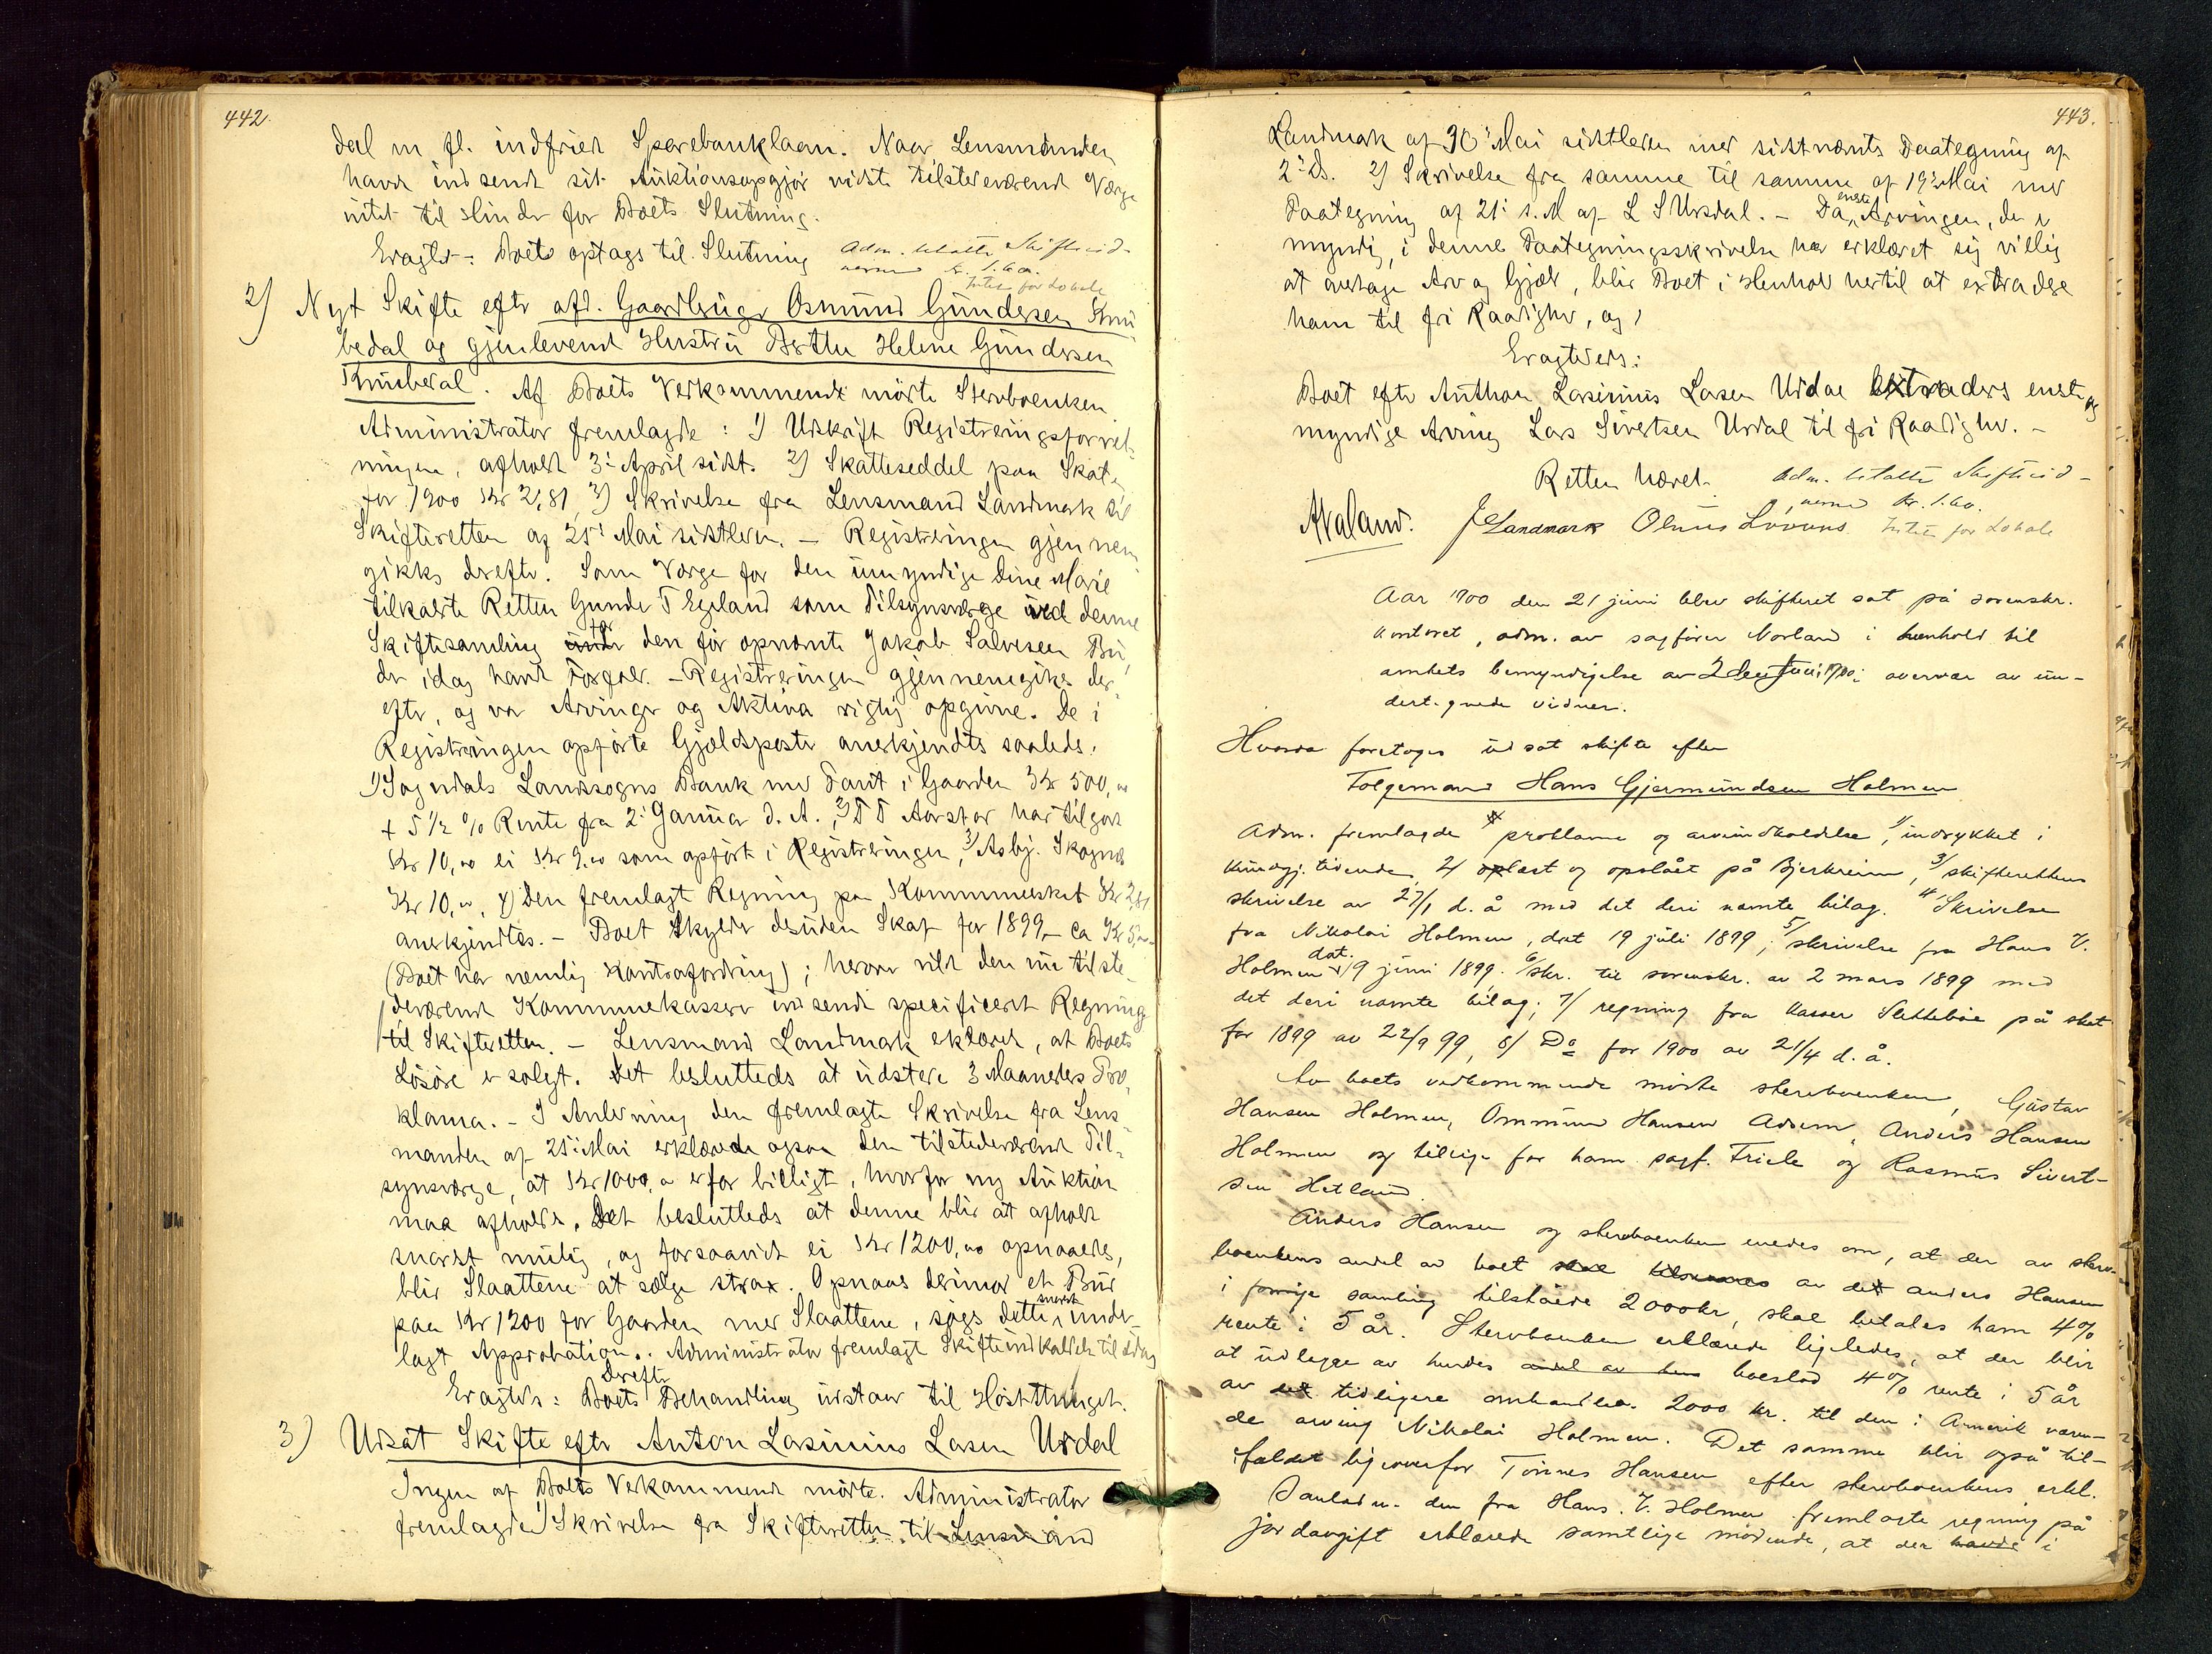 442.
dal m fl. indfriet Sparebanklaan. Naar Lensmanden
havde indsendt sit Auktionsopgjør vidste tilstedeværende Værge
intet til Hinder for Boets Slutning.
Eragtet: Boets optages til Slutning
Adm. betalte Skifteeid-
nerne Kr. 1.60.
Intet for Lokale
2) Nyt Skifte efter afd. Gaardbruger Osmund Gundersen Knu
bedal og gjenlevende Hustru Berthe Helene Gundersen
Knubedal. Af Boets Vedkommende mødte Stervboenken
Administrator fremlagde: 1) Udskrift Registreringsforret-
ningen, afholdt 3' April sidst. 2) Skatteseddel paa Skat
for 1900 Kr 2,81, 3) Skrivelse fra Lensmand Landmark til
Skifteretten af 25' Mai sidstleden. - Registreringen gjennem
gikks derefter. Som Værge for den umyndige Dine Marie
tilkaldte Retten Gunder T Egeland som Tilsynsværge ved denne
Skiftesamling for den før opnævnte Jakob Salvesen Bu,
der idag havde Forfald. - Registreringen gjennemgikks der-
efter, og var Arvinger og Aktiva rigtig opgivne. De i
Registreringen opførte Gjældsposter anerkjendtes saaledes.
1) Sogndals Landsogns Bank med Pant i Gaarden Kr 500,00
+ 5 1/2 % Rente fra 2' Januar d. A., 2) T T Aarstad har tilgode
Kr 10,00 ei Kr 9.00 som opført i Registreringen, 3) Asbj. Skogned
Kr 10,00, 4) Den fremlagte Regning paa Kommuneskat Kr 2,81
anerkjendtes. - Boet skylder desuden Skat for 1899 - ca Kr 5,00
(Boet har nemlig Kontrafordring); herom vilde den nu tilste
deværende Kommunekasserer indsende specificeret Regning
til Skifteretten. - Lensmand Landmark erklæret, at Boets
Løsøre er solgt. Det besluttedes at udstede 3 Maaneders Pro
klama. - I Anledning den fremlagte Skrivelse fra Lens
manden af 25' Mai erklærede ogsaa den tilstedeværende Til-
synsværge, at Kr 1000,00 er for billigt, hvorfor ny Auktion
maa afholdes. Det besluttedes at denne blir at afholde
snarest mulig, og forsaavidt ei Kr 1200,00 opnaaedes,
blir Slaattene at sælge strax. Opnaas derimod et Bud
paa Kr 1200 for Gaarden med Slaattene, søges dette snarest under-
lagt Approbation. Administrator fremlagte Skifteindkaldelse til idag
derefter
Eragtedes: Boets Behandling udstaar til Høstthinget.
3) Udsat Skifte efter Anton Lasinius Lasen Urdal
Ingen af Boets Vedkommende mødte. Administrator
fremlagde 1) Skrivelse fra Skifteretten til Lensmand
443.
Landmark af 30' Mai sidstleden med sidstnævnts Paategning af
2' ds. 2) Skrivelse fra samme til samme af 19' Mai med
Paategning af 21' s. M af L S Ursdal. - Da eneste Arvingen, der er
myndig, i denne Paategningsskrivelse har erklæret sig villig
at overtage Arv og Gjæld, blir Boet i Henhold hertil at extradere
ham til fri Raadighed, og
Eragtedes:
Boet efter Anthon Lasinius Lasen Urdal extraderes eneste og
myndige Arving Lars Sivertsen Urdal til fri Raadighed. -
Retten hævet.
Adm. betalte Skifteeid-
nerne Kr. 1.60.
Intet for Lokale
Avaland. J Landmark Olnius Lovens
Aar 1900 den 21 juni blev skifteret sat på sorenskr.
kontoret, adm. av sagfører Norland i henhold til
amtets bemyndigelse av 2den Juni 1900; overvær av un-
dertegnede vidner.
Hvorda foretoges udsat skifte efter
Folgemand Hans Gjermundsen Holmen
Adm. fremlagde proklama og arveindkaldelse, 1/ indrykket i
kundgj. tidende, 2/ oplæst og opslået på Bjerkreim, 3/ skifterettens
skrivelse av 27/1 d. å med det deri nævnte bilag. 4/ Skrivelse
fra Nikolai Holmen, dat 19 juli 1899; 5/ skrivelse fra Hans V.
Holmen dat. 19 juni 1899; 6/ skr. til sorenskr. av 2 mars 1899 med
det deri nævnte bilag; 7/ regning fra kasser Slettebøe på skat
for 1899 av 22/9 99, 8/ Do for 1900 av 21/4 d. å.
Av boets vedkommende mødte stervboenken, Gustav
Hansen Holmen, Ommund Hansen Adsem, Anders Hansen
Holmen og tillige for ham sagf. Friele og Rasmus Sivert-
sen Hetland.
Anders Hansen og stervboenken enedes om, at der av sterv-
boenkens andel av boet skal tilkomme av det Anders Hansen
i forrige samling tilståede 2000 kr, skal betales ham 4%
rente i 5 år. Stervboenken erklærede ligeledes, at der blir
at udlegge av hendes andel av boeslod 4% rente i 5 år
av det tidligere omhandlede 2000 kr. til den i Amerik væren-
de arving Nikolai Holmen. Det samme blir også til-
fældet ligeoverfor Tønnes Hansen efter stervboenkens erkl.
Saalæn. den fra Hans. V. Holmen fremlagte regning på
jordavgift erklærede samtlige mødende, at der havde i